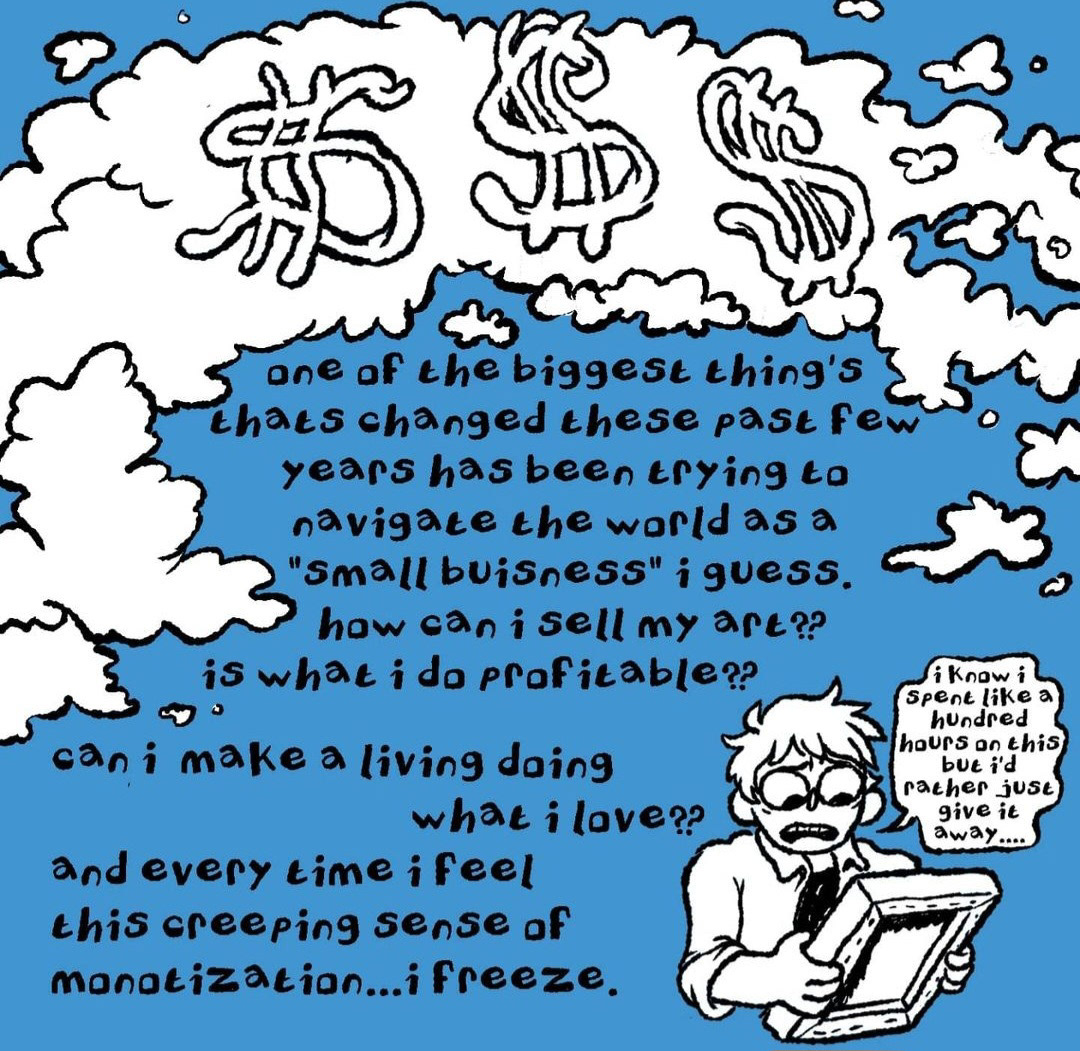 $ $ $
one of the biggest thing's
thats changed these past few
years has been trying to
navigate the world as a
"small buisness" i guess.
how can i sell my art??
is what i do profitable??
can i make a living doing
what i love??
and every time i feel
this creeping sense of
monotization...i freeze.
i know i
spent like a
hundred
hours on this
but i'd
rather just
give it
away....